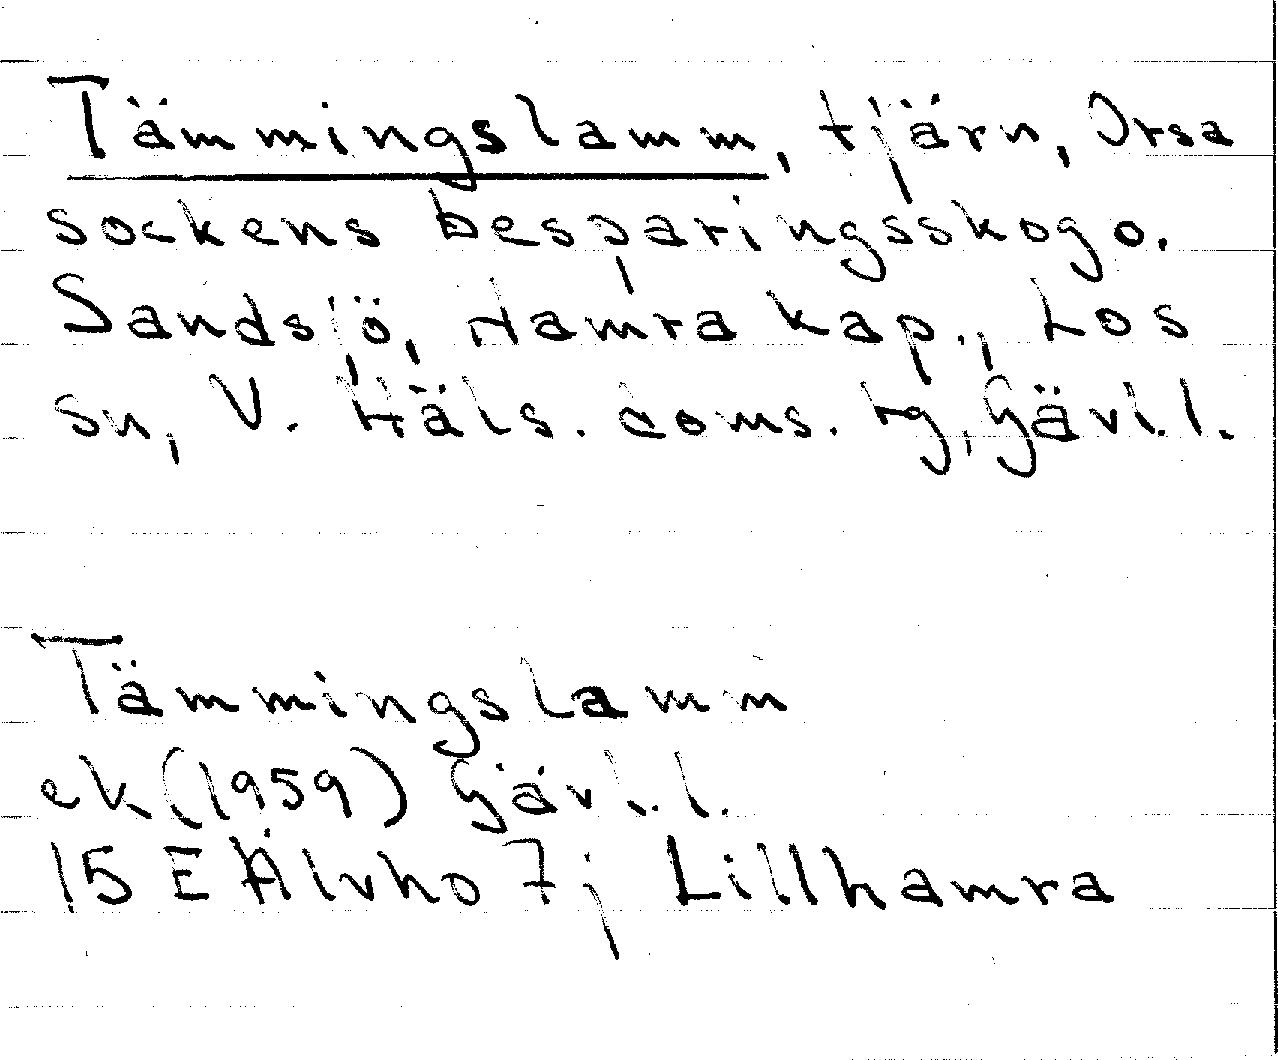 Tämmingslamm, tjärn, Orsa
sockens besparingsskog o.
Sandsjö, Hamra kap., Los
sn, V. Häls. doms. tg, Gävl. l.
Tämmingslamm
ek (1959) Gävl. l.
15 E Älvho 7j Lillhamra